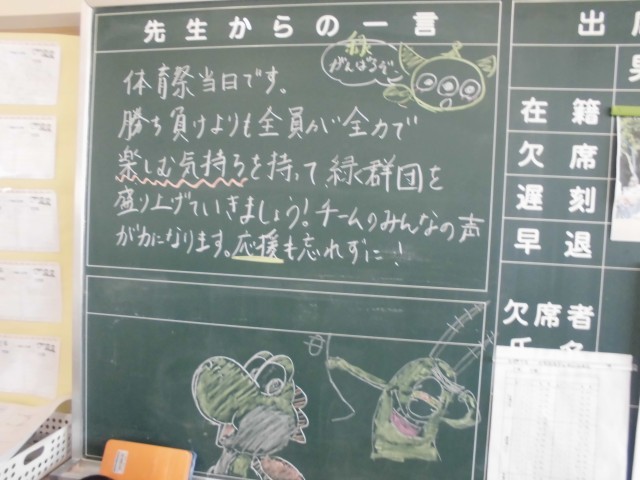 先生からの一言
緑
がんばるぞ
体育祭当日です。
勝ち負けよりも全員が全力で
楽しむ気持ちを持って、緑群団を
盛り上げていきましょう!チームのみんなの声
が力になります。応援も忘れずに!
在籍
欠席
遅刻
早退
欠席者